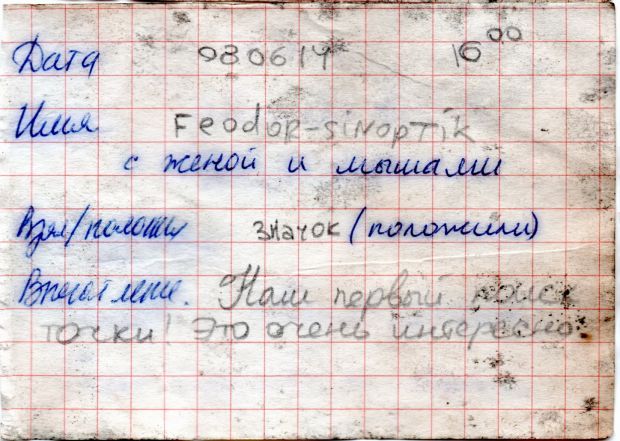 Дата 080614 16 00
Имя Feodor-sinoptik
с женой и мышами
Взял/положил значок (положили)
Впечатление. Наш первый поиск
точки! Это очень интересно